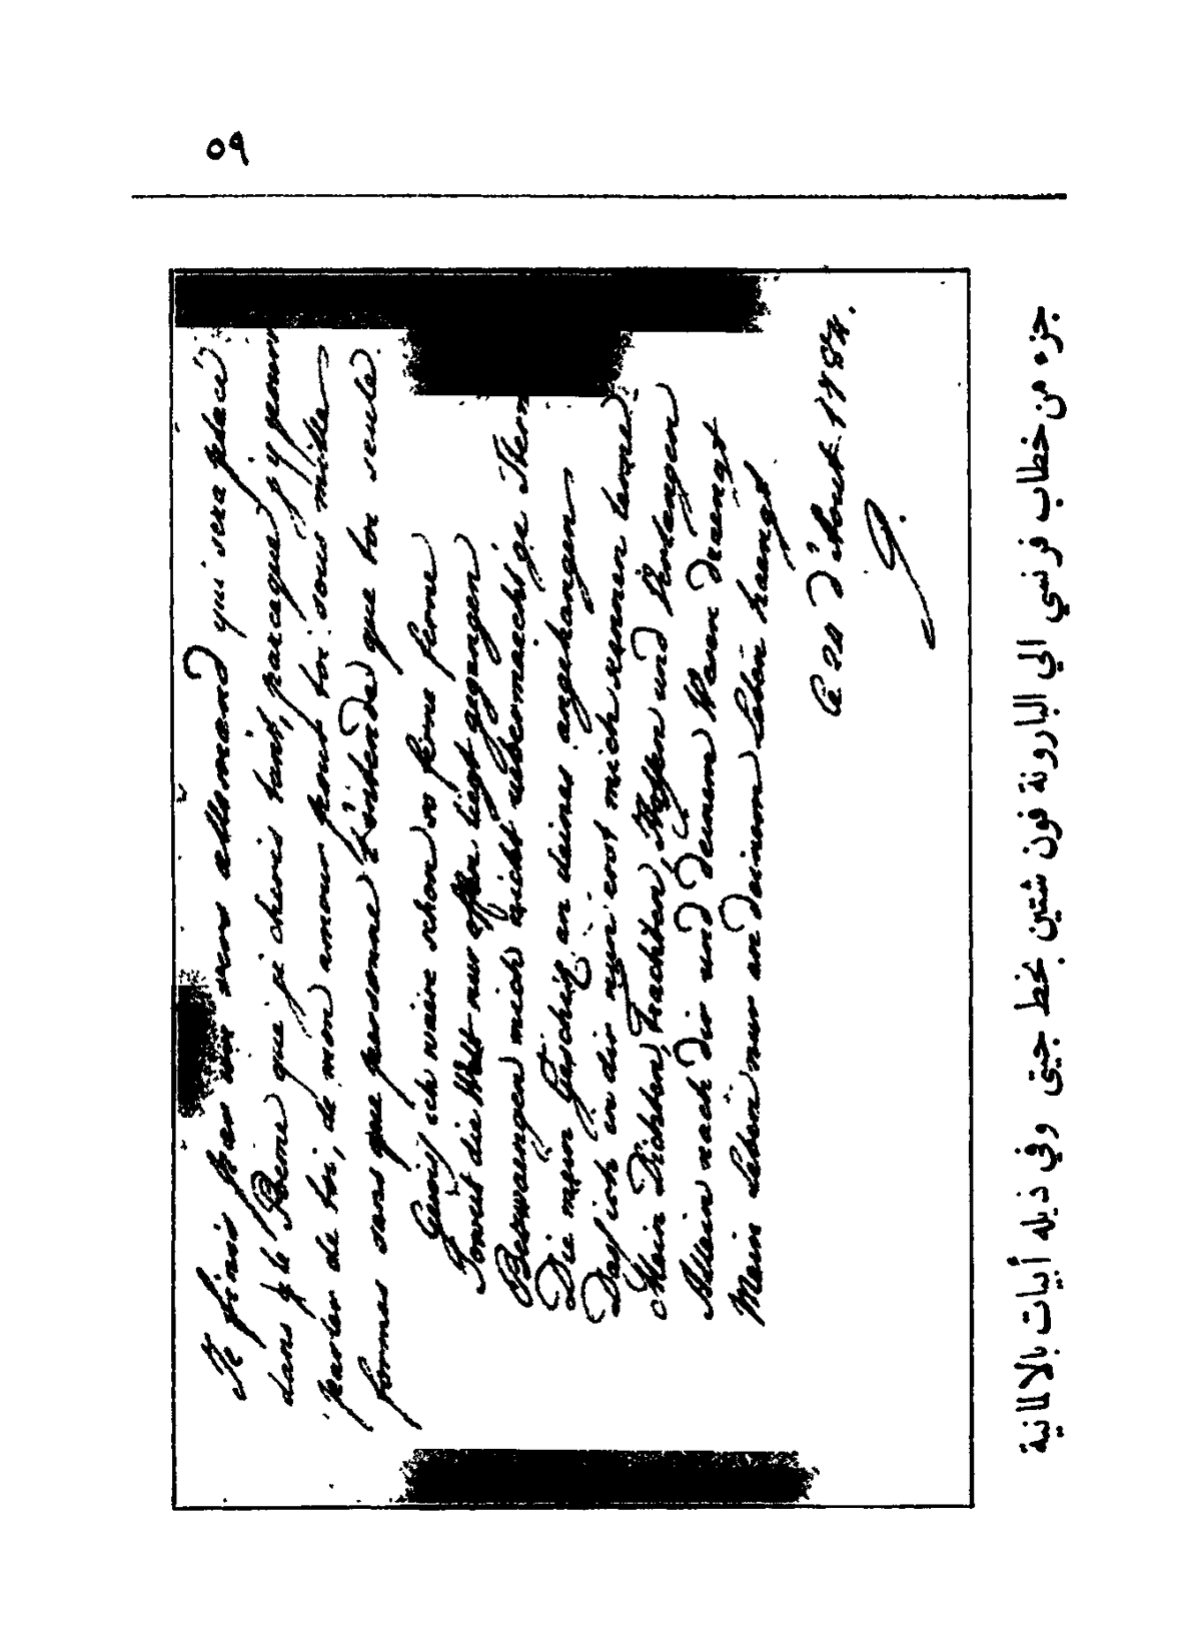 ٥٩
Je finis par un vers allemand qui sera placé
dans le Poeme que je cheris tant, parceque j'y pourrai
parler de toi, de mon amour pour toi sous mille
formes sans que personne l'entende que toi seule.
Gewis ich wäre schon so ferne ferne
Soweit die Welt nur offen liegt gegangen
Bezwaengen mich nicht uebermaechtge Stern
Die mein Geschick an deines angehangen
Das ich in dir nun erst mich kennen lerne
Mein Dichten, Trachten, Hoffen und Verlangen
Allein nach dir und deinem Wesen draengt
Mein Leben nur an deinem Leben haengt
le 24 d'Aout 1784.
G.
جزء من خطاب فرنسي الي البارونة فون شتين بخط جيتي وفي ذيله أبيات بالالمانية